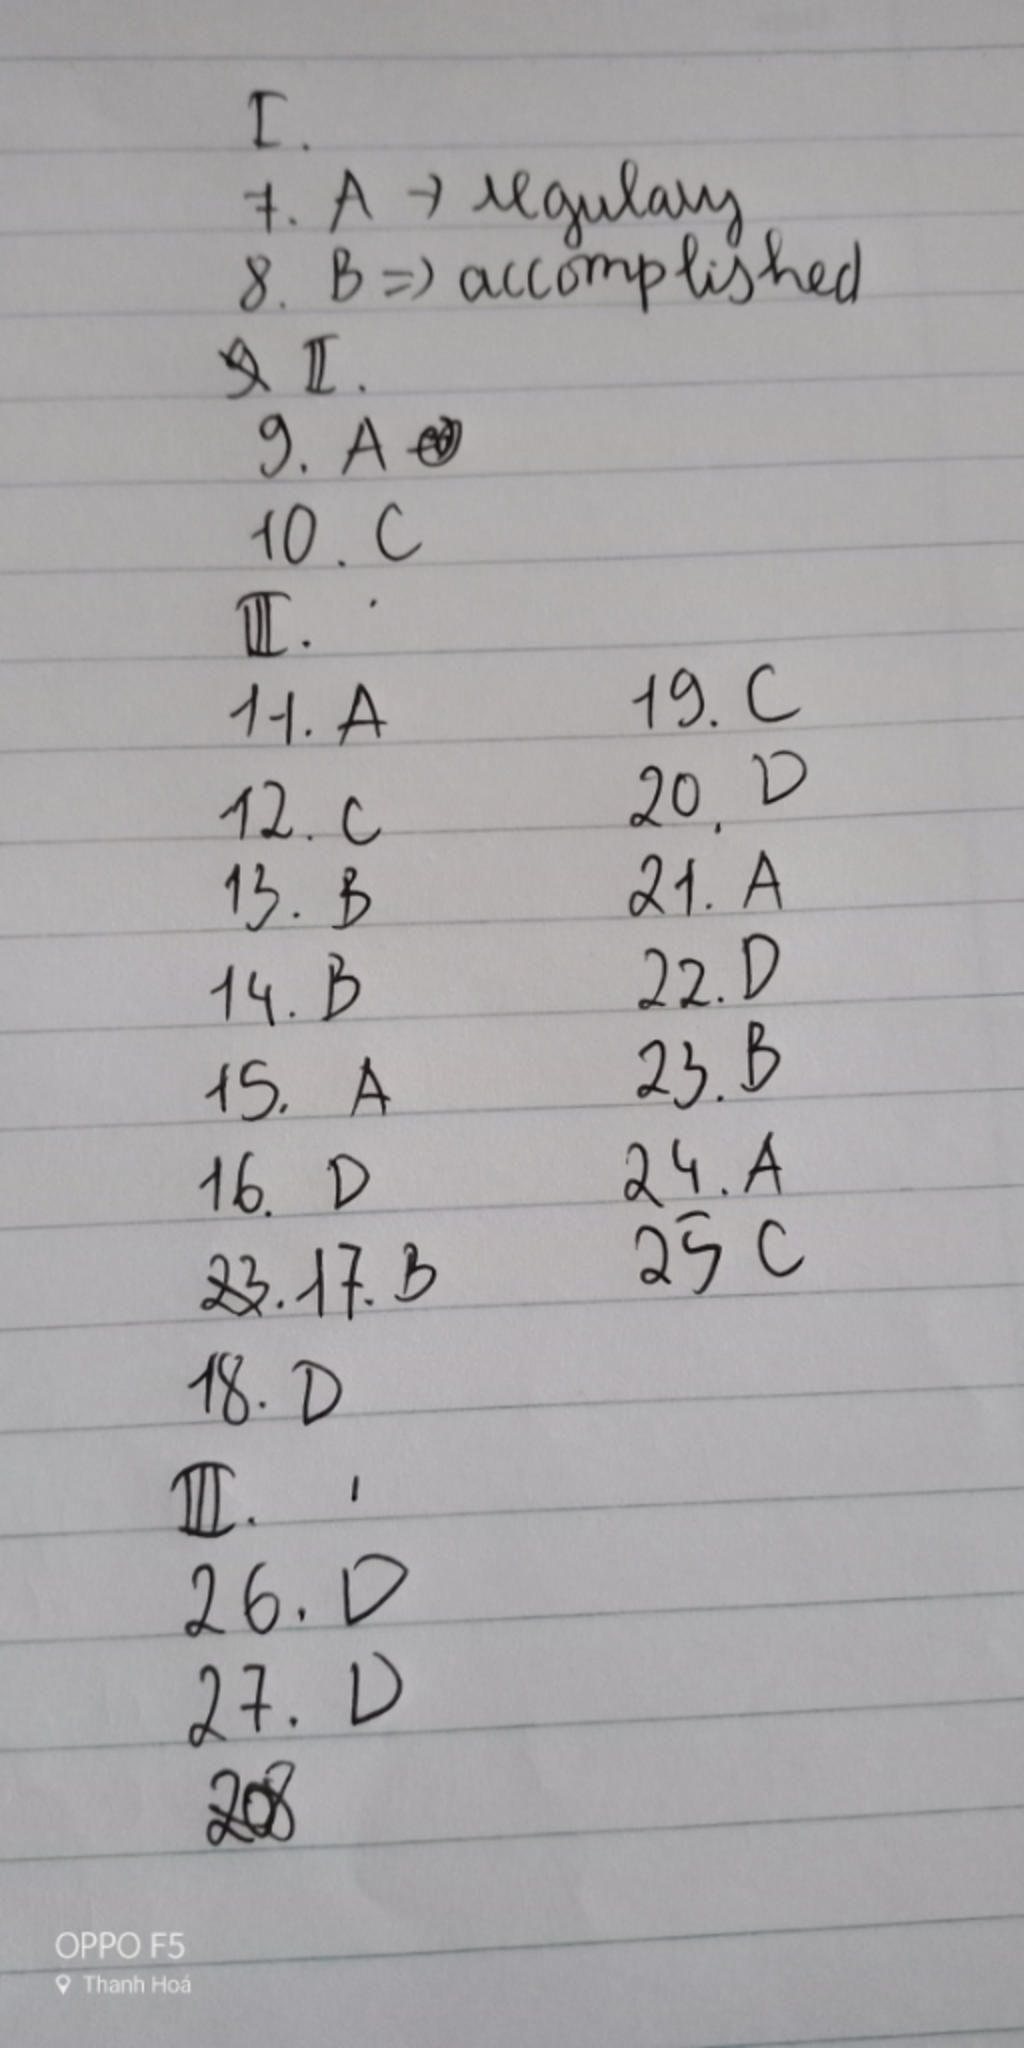 I.
7. A → regulary
8. B => accomplished
II.
9. A
10. C
III.
11. A
12. C
13. B
14. B
15. A
16. D
23. 17. B
18. D
19. C
20. D
21. A
22. D
23. B
24. A
25 C
III.
26. D
27. D
28
OPPO F5
Thanh Hoá